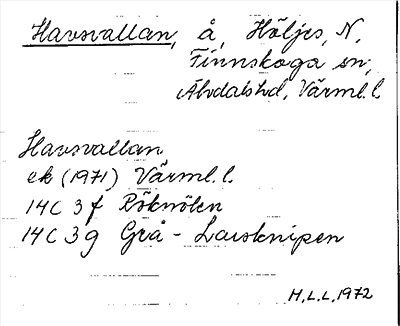 Havsvallan, å, Höljes, N,
Finnskoga sn,
Älvdals hd, Värml. l.
Havsvallan
ek (1971) Värml. l.
14C 3f Röknölen
14C 3g Grå-Larsknipen
H.L.L. 1972